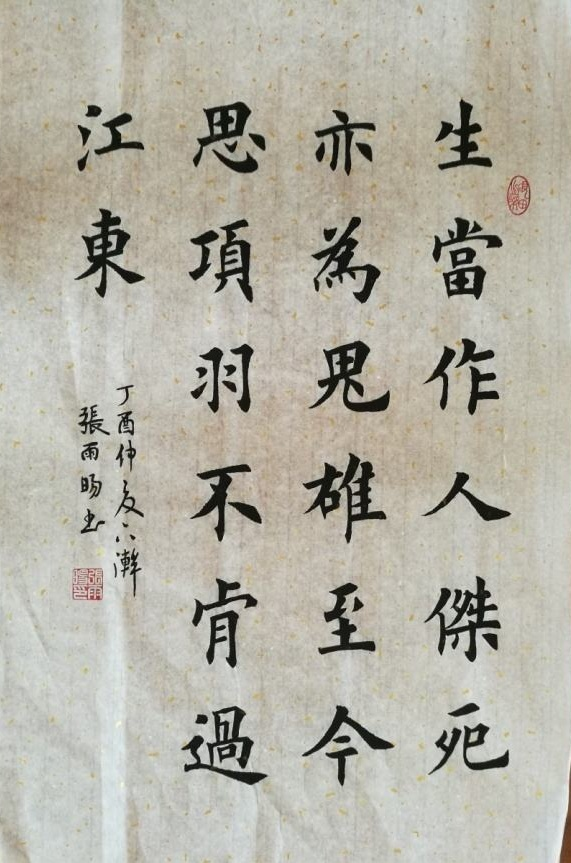 生當作人傑死
亦為鬼雄至今
思項羽不肯過
江東
丁酉仲夏六漸
張雨暘书